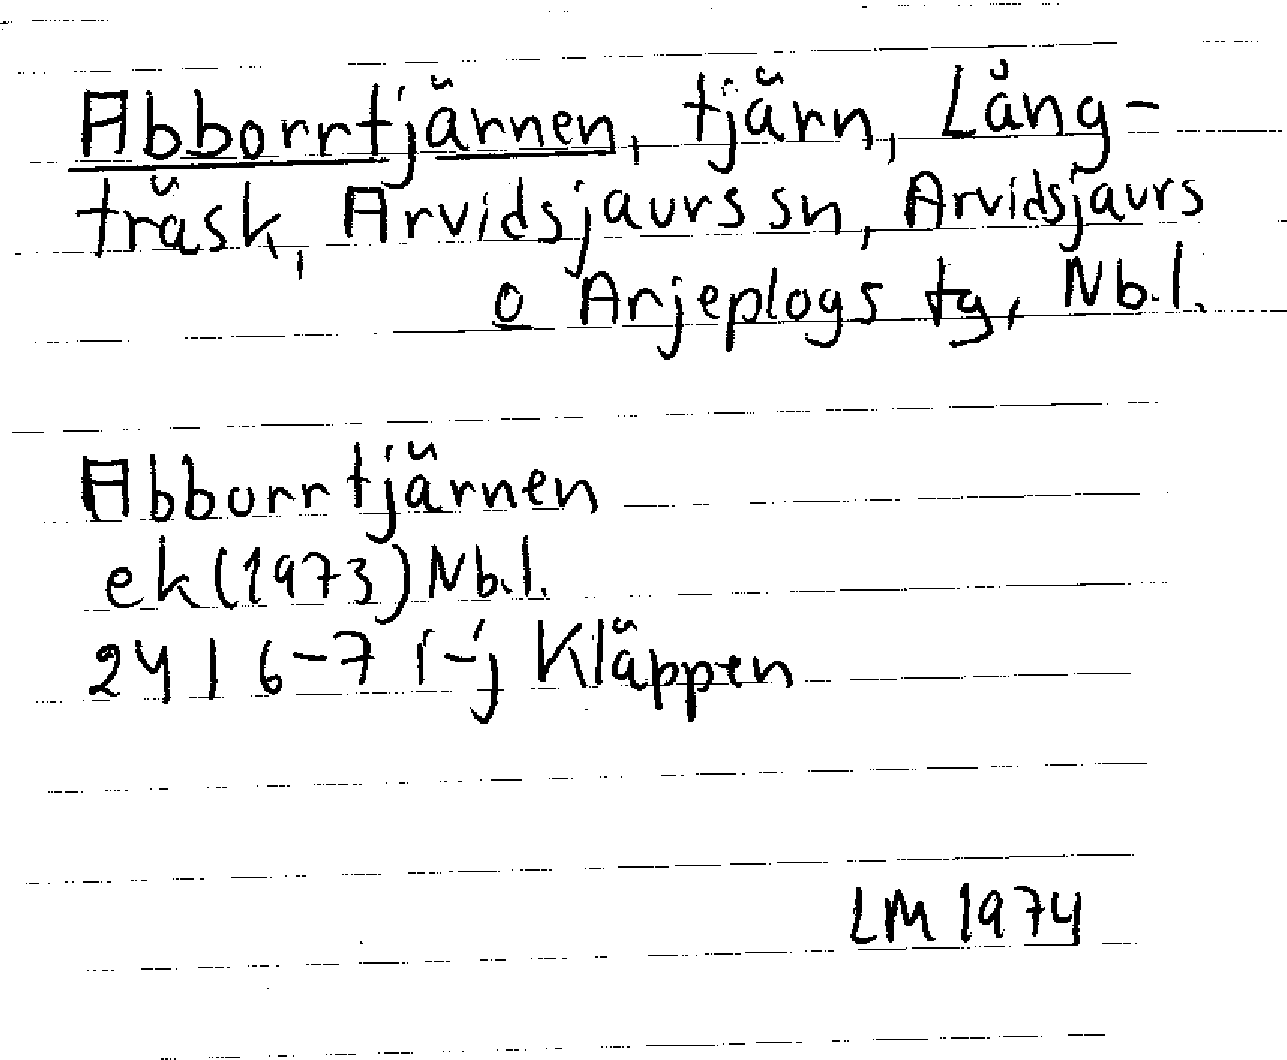 Abborrtjärnen, tjärn, Lång-
träsk, Arvidsjaurs sn, Arvidsjaurs
o Arjeplogs tg, Nb.l.
Abborrtjärnen
ek (1973) Nb.l.
24 I 6-7 i-j Kläppen
LM 1974